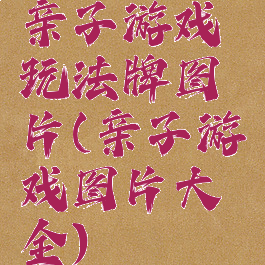 亲子游戏
玩法牌图
片(亲子游
戏图片大
全)